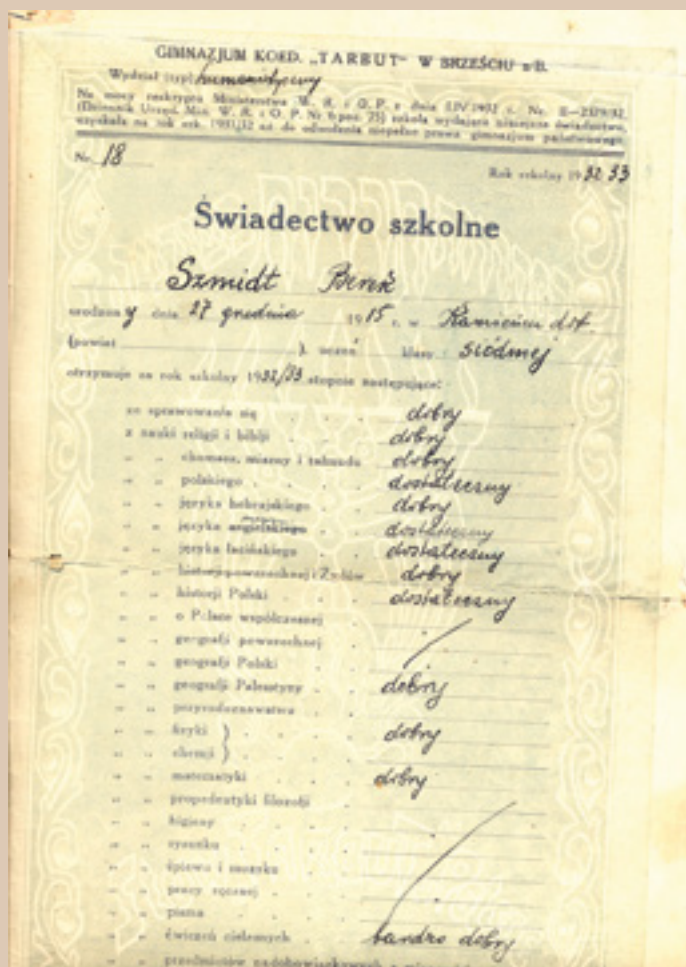 GIMNAZJUM KOED. „TARBUT" W BRZEŚCIU n/B.
Wydział (typ) humanistyczny
Na mocy reskryptu Ministerstwa W. R. i O. P. z dnia 1932 r. Nr. II—
(Dziennik Urzęd. Min. W. R. i O. P. Nr. poz. szkoła wydająca niniejsze świadectwo,
uzyskała na rok szk. 1931/32 aż do odwołania niepełne prawa gimnazjum państwowego.
Nr. 18
Rok szkolny 1932 33
Świadectwo szkolne
Szmidt Berek
urodzony dnia 27 grudnia 1915 r. w Kamieńcu
(powiat ), uczeń klasy siódmej
otrzymuje za rok szkolny 1932/33 stopnie następujące:
ze sprawowania się dobry
z nauki religji i biblji dobry
„ „ chumesz, miszny i talmudu dobry
„ „ polskiego dostateczny
„ „ języka hebrajskiego dobry
„ „ języka angielskiego dostateczny
„ „ języka łacińskiego dostateczny
„ „ historji powszechnej i Żydów dobry
„ „ historji Polski dostateczny
„ „ o Polsce współczesnej
„ „ geografji powszechnej
„ „ geografji Polski
„ „ geografji Palestyny dobry
„ „ przyrodoznawstwa
„ „ fizyki } dobry
„ „ chemji }
„ „ matematyki dobry
„ „ propedeutyki filozofji
„ „ higieny
„ „ rysunku
„ „ śpiewu i muzyki
„ „ pracy ręcznej
„ „ pisma
„ „ ćwiczeń cielesnych bardzo dobry
„ „ przedmiotów nadobowiązkowych